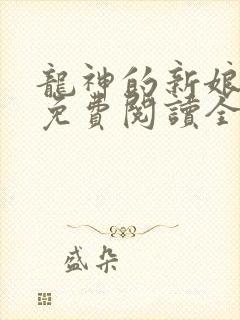 龍神的新娘
免費閱讀全
盛朵